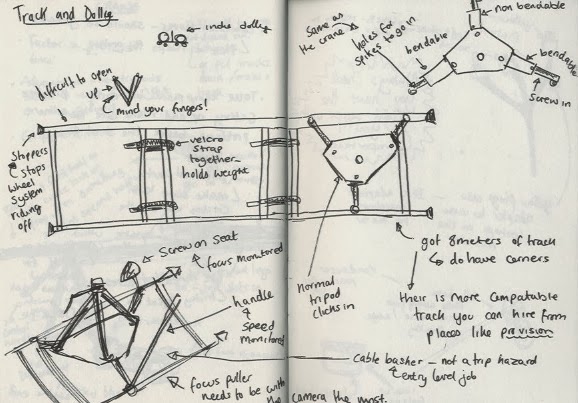 Track and Dolly
indie dolly
difficult to open
up
mind your fingers!
Stoppers
stops
wheel
system
riding
off
velcro
strap
together
holds weight
Same as
the crane
holes for
spikes to go in
bendable
non bendable
bendable
screw in
normal
tripod
clicks in
got 8 meters of track
do have corners
their is more compatable
track you can hire from
places like provision
Screw on seat
focus monitored
handle
&
speed
monitored
Cable basher – not a trip hazard
entry level job
focus puller
needs to be with
the camera the most.